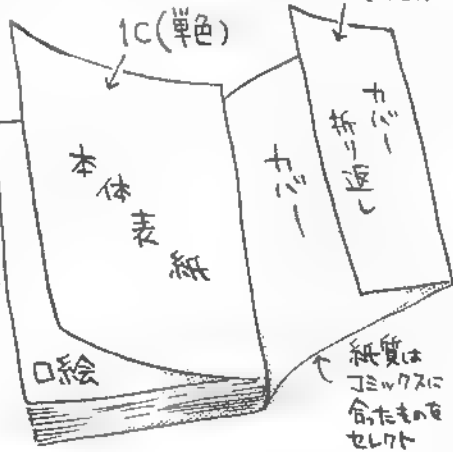 1C(単色)
本体表紙
カバー
カバー
折り返し
口絵
紙質は
コミックスに
合ったものを
セレクト